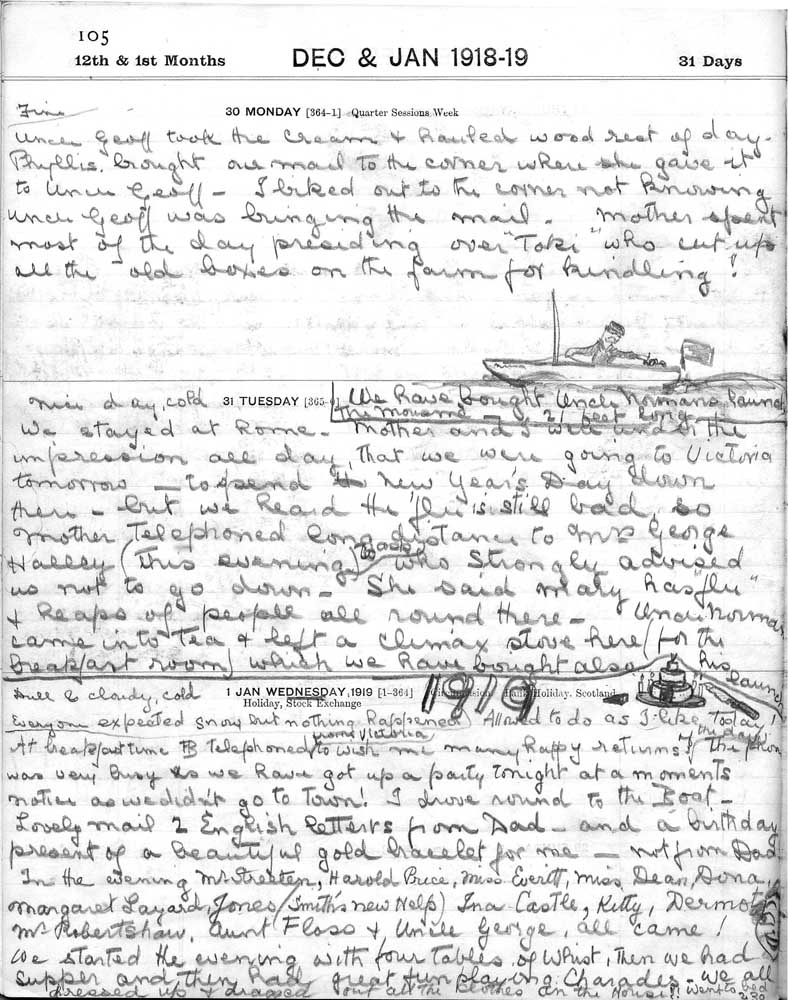 105
12th & 1st Months DEC & JAN 1918-19 31 Days
Fine 30 MONDAY [364-1] Quarter Sessions Week
Uncle Geoff took the cream & hauled wood rest of day.
Phyllis brought our mail to the corner where she gave it
to Uncle Geoff - I biked out to the corner not knowing
Uncle Geoff was bringing the mail. Mother spent
most of the day presiding over "Toki" who cut up
all the old boxes on the farm for kindling!
nice day, cold 31 TUESDAY [365- We have bought Uncle Norman's launch
21 feet long
We stayed at home. Mother and I were under the
impression all day, that we were going to Victoria
tomorrow - to spend New Year's Day down
there - but we heard the 'flu is still bad, so
Mother telephoned long distance to Mrs George
Halley (this evening) to ask who strongly advised
us not to go down - She said Mary has "flu"
& heaps of people all round there - Uncle Norman
came in to tea & left a Climax stove here (for the
breakfast room) which we have bought also
his launch
Dull & cloudy, cold 1 JAN WEDNESDAY, 1919 [1-364] Circumcision. Bank Holiday. Scotland
Holiday, Stock Exchange
1919
Everyone expected snow but nothing happened) Allowed to do as I like today!
At breakfast time B telephoned from Victoria to wish me many happy returns of the day the phone
was very busy as we have got up a party tonight at a moments
notice as we didn't go to Town! I drove round to the Boat -
Lovely mail 2 English letters from Dad - and a birthday
present of a beautiful gold bracelet for me - not from Dad
In the evening Mr Streeten, Harold Price, Miss Everett, Miss Dean, Dona,
Margaret Layard, Jones (Smith's new Help) Ina Castle, Kitty, Dermot
Mr Robertshaw, Aunt Floss & Uncle George, all came!
We started the evening with four tables of Whist, then we had
supper and then had great fun playing Charades - we all
dressed up & dragged out all the clothes in the house! Went to bed